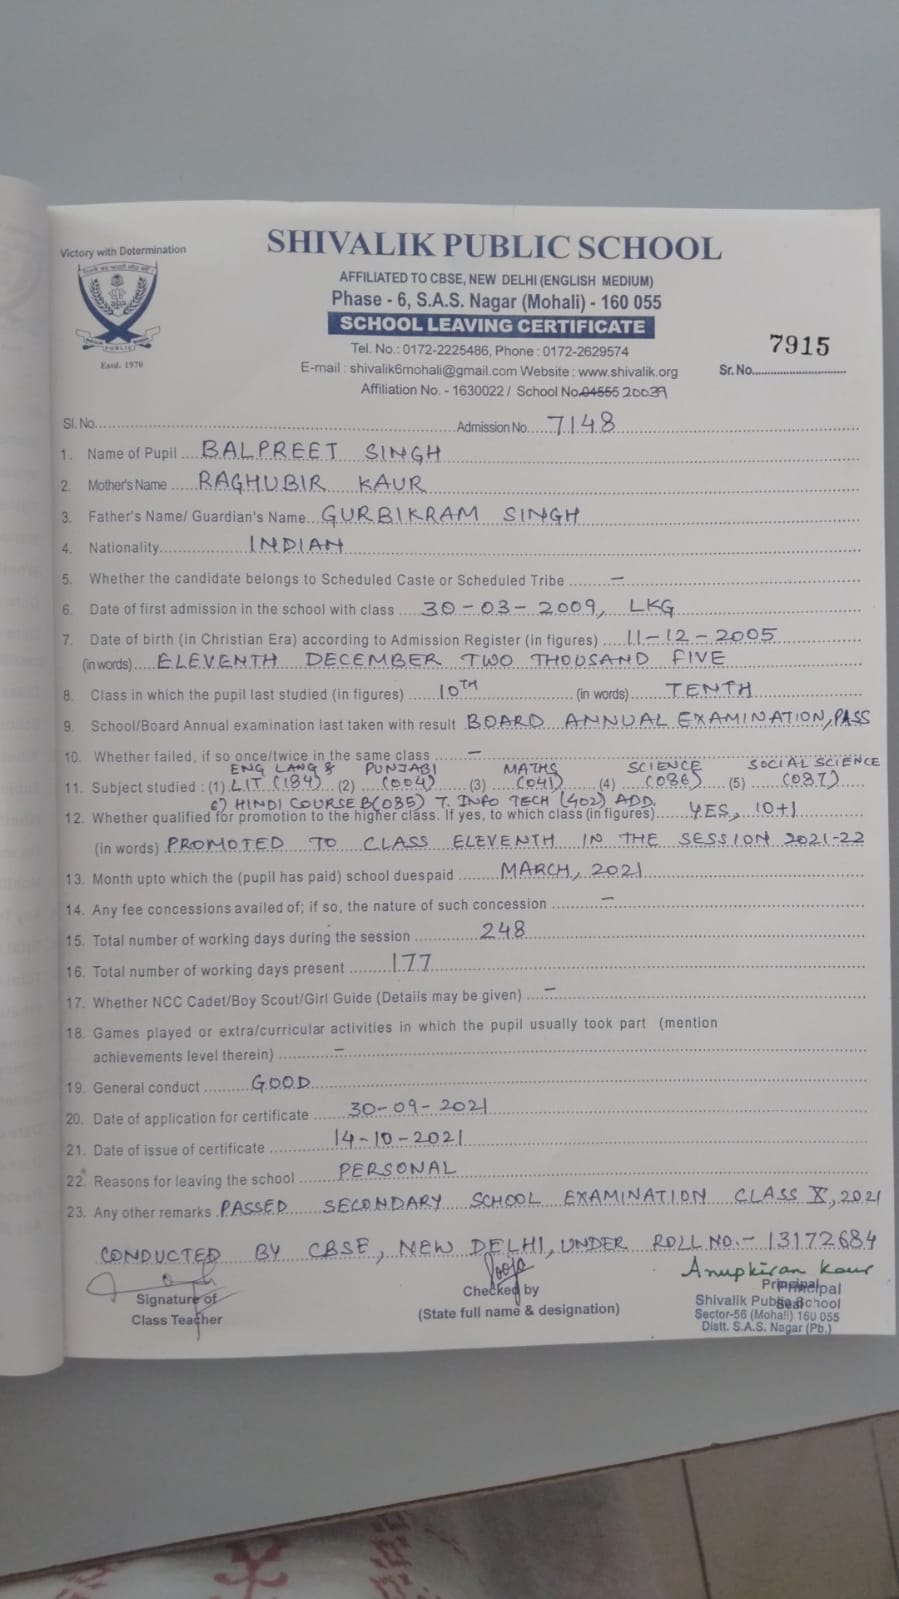 Victory with Determination
PUBLIC
Estd. 1970
SHIVALIK PUBLIC SCHOOL
AFFILIATED TO CBSE, NEW DELHI (ENGLISH MEDIUM)
Phase - 6, S.A.S. Nagar (Mohali) - 160 055
SCHOOL LEAVING CERTIFICATE
Tel. No.: 0172-2225486, Phone : 0172-2629574
E-mail : shivalik6mohali@gmail.com Website : www.shivalik.org
Affiliation No. - 1630022 / School No. 04555 20039
7915
Sr. No.
Sl. No. Admission No. 7148
1. Name of Pupil BALPREET SINGH
2. Mother's Name RAGHUBIR KAUR
3. Father's Name/ Guardian's Name GURBIKRAM SINGH
4. Nationality INDIAN
5. Whether the candidate belongs to Scheduled Caste or Scheduled Tribe –
6. Date of first admission in the school with class 30-03-2009, LKG
7. Date of birth (in Christian Era) according to Admission Register (in figures) 11-12-2005
(in words) ELEVENTH DECEMBER TWO THOUSAND FIVE
8. Class in which the pupil last studied (in figures) 10TH (in words) TENTH
9. School/Board Annual examination last taken with result BOARD ANNUAL EXAMINATION, PASS
10. Whether failed, if so once/twice in the same class –
ENG LANG & PUNJABI MATHS SCIENCE SOCIAL SCIENCE
11. Subject studied : (1) LIT (184) (2) (004) (3) (041) (4) (086) (5) (087)
6) HINDI COURSE B(085) 7. INFO TECH (402) ADD.
12. Whether qualified for promotion to the higher class. If yes, to which class (in figures) YES, 10+1
(in words) PROMOTED TO CLASS ELEVENTH IN THE SESSION 2021-22
13. Month upto which the (pupil has paid) school duespaid MARCH, 2021
14. Any fee concessions availed of; if so, the nature of such concession –
15. Total number of working days during the session 248
16. Total number of working days present 177
17. Whether NCC Cadet/Boy Scout/Girl Guide (Details may be given) –
18. Games played or extra/curricular activities in which the pupil usually took part (mention
achievements level therein) –
19. General conduct GOOD
20. Date of application for certificate 30-09-2021
21. Date of issue of certificate 14-10-2021
22. Reasons for leaving the school PERSONAL
23. Any other remarks PASSED SECONDARY SCHOOL EXAMINATION CLASS X, 2021
CONDUCTED BY CBSE, NEW DELHI, UNDER ROLL NO.- 13172684
Signature of
Class Teacher
Pooja
Checked by
(State full name & designation)
Anupkiran Kaur
Principal
Seal
Principal
Shivalik Public School
Sector-56 (Mohali) 160 055
Distt. S.A.S. Nagar (Pb.)